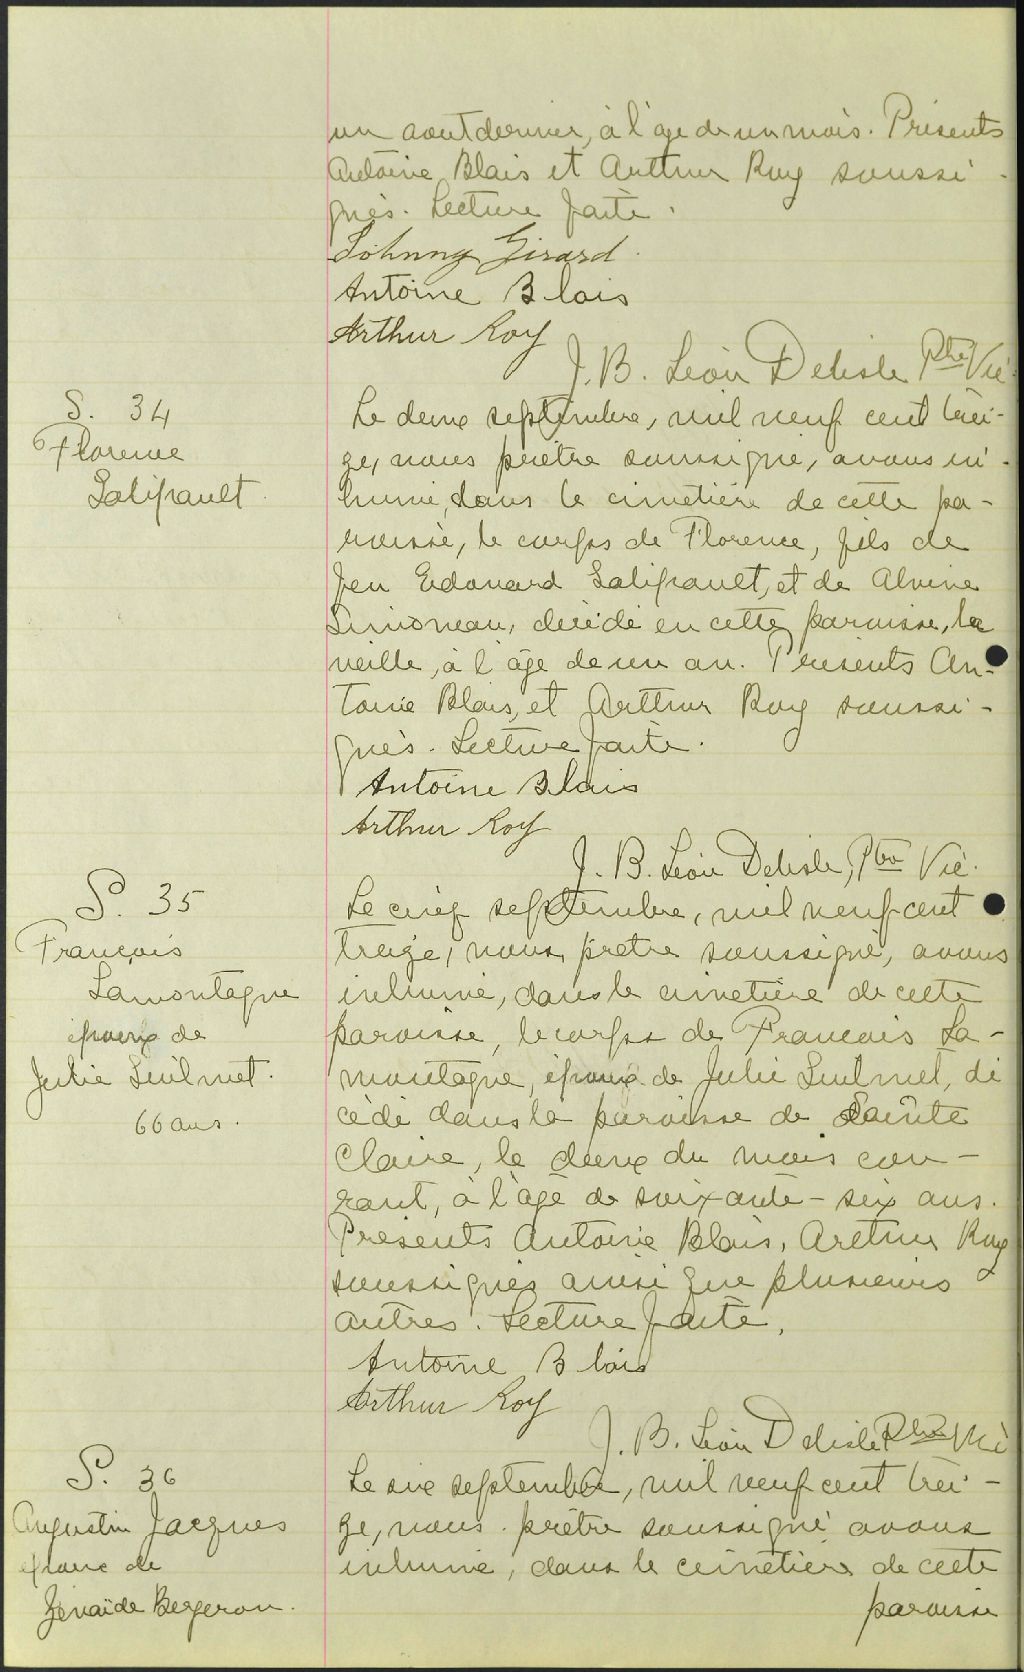 un aout dernier, à l'age de un mois. Présents
Antoine Blais et Arthur Roy soussi-
gnés. Lecture faite.
Johnny Girard.
Antoine Blais
Arthur Roy
J. B. Léon Delisle Ptre Vic.
S. 34
Florence
Labifrault.
Le deux septembre, mil neuf cent trei-
ze, nous prêtre soussigné, avons in-
humé, dans le cimetière de cette pa-
roisse, le corps de Florence, fils de
feu Edouard Labifrault, et de Alvine
Simoneau, décédé en cette paroisse, la
veille, à l'âge de un an. Présents An-
toine Blais, et Arthur Roy soussi-
gnés. Lecture faite.
Antoine Blais
Arthur Roy
J. B. Léon Delisle, Ptre Vic.
S. 35
François
Lamontagne
époux de
Julie
66 ans.
Le cinq septembre, mil neuf cent
treize, nous, prêtre soussigné, avons
inhumé, dans le cimetière de cette
paroisse, le corps de Francois La-
montagne, époux de Julie dé
cédé dans la paroisse de Sainte
Claire, le deux du mois cou-
rant, à l'âge de soixante-six ans.
Présents Antoine Blais, Arthur Roy
soussignés ainsi que plusieurs
autres. Lecture faite.
Antoine Blais
Arthur Roy
J. B. Léon Delisle Ptre Vic
S. 36
Augustin Jacques
époux de
Zénaïde Bergeron.
Le six septembre, mil neuf cent trei-
ze, nous prêtre soussigné avons
inhumé, dans le cimetière de cette
paroisse